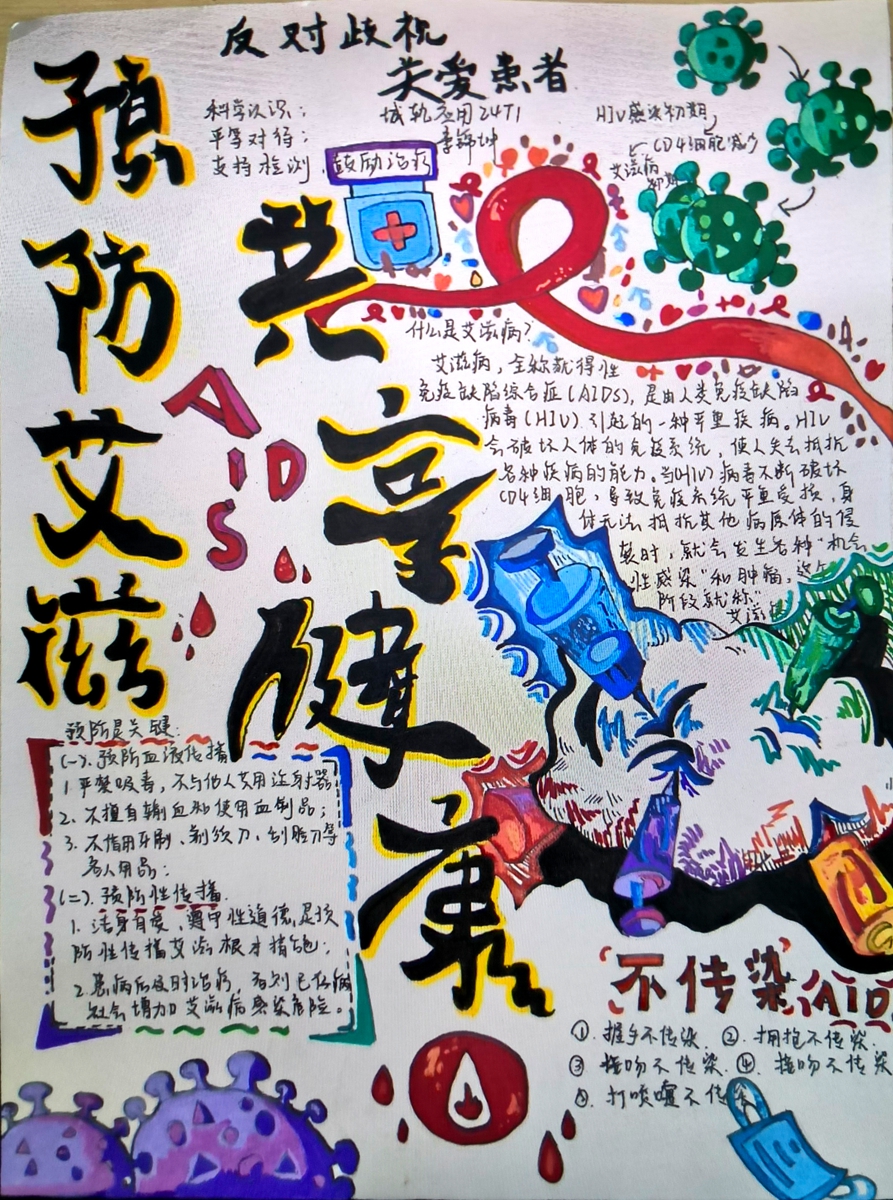 反对歧视
关爱患者
科学认识；
平等对待；
支持检测，鼓励治疗
城轨应用24T1
李锦坤
HIV感染初期
CD4细胞减少
艾滋病
初期
预防艾滋
共享健康
AIDS
什么是艾滋病？
艾滋病，全称获得性
免疫缺陷综合症（AIDS），是由人类免疫缺陷
病毒（HIV）引起的一种严重疾病。HIV
会破坏人体的免疫系统，使人失去抵抗
各种疾病的能力。当HIV病毒不断破坏
CD4细胞，导致免疫系统严重受损，身
体无法抵抗其他病原体的侵
袭时，就会发生各种“机会
性感染”和肿瘤，这个
阶段就称“
艾滋
预防是关键：
（一）．预防血液传播
1．严禁吸毒，不与他人共用注射器
2．不擅自输血和使用血制品；
3．不借用牙刷、剃须刀、刮脸刀等
个人用品；
（二）．预防性传播
1．洁身自爱、遵守性道德是预
防性传播艾滋根本措施；
2．患病后及时治疗，否则已有病
社会增加艾滋病感染危险。
不传染AID
①．握手不传染．②．拥抱不传染．
③．接吻不传染．④．接吻不传染
⑤．打喷嚏不传染